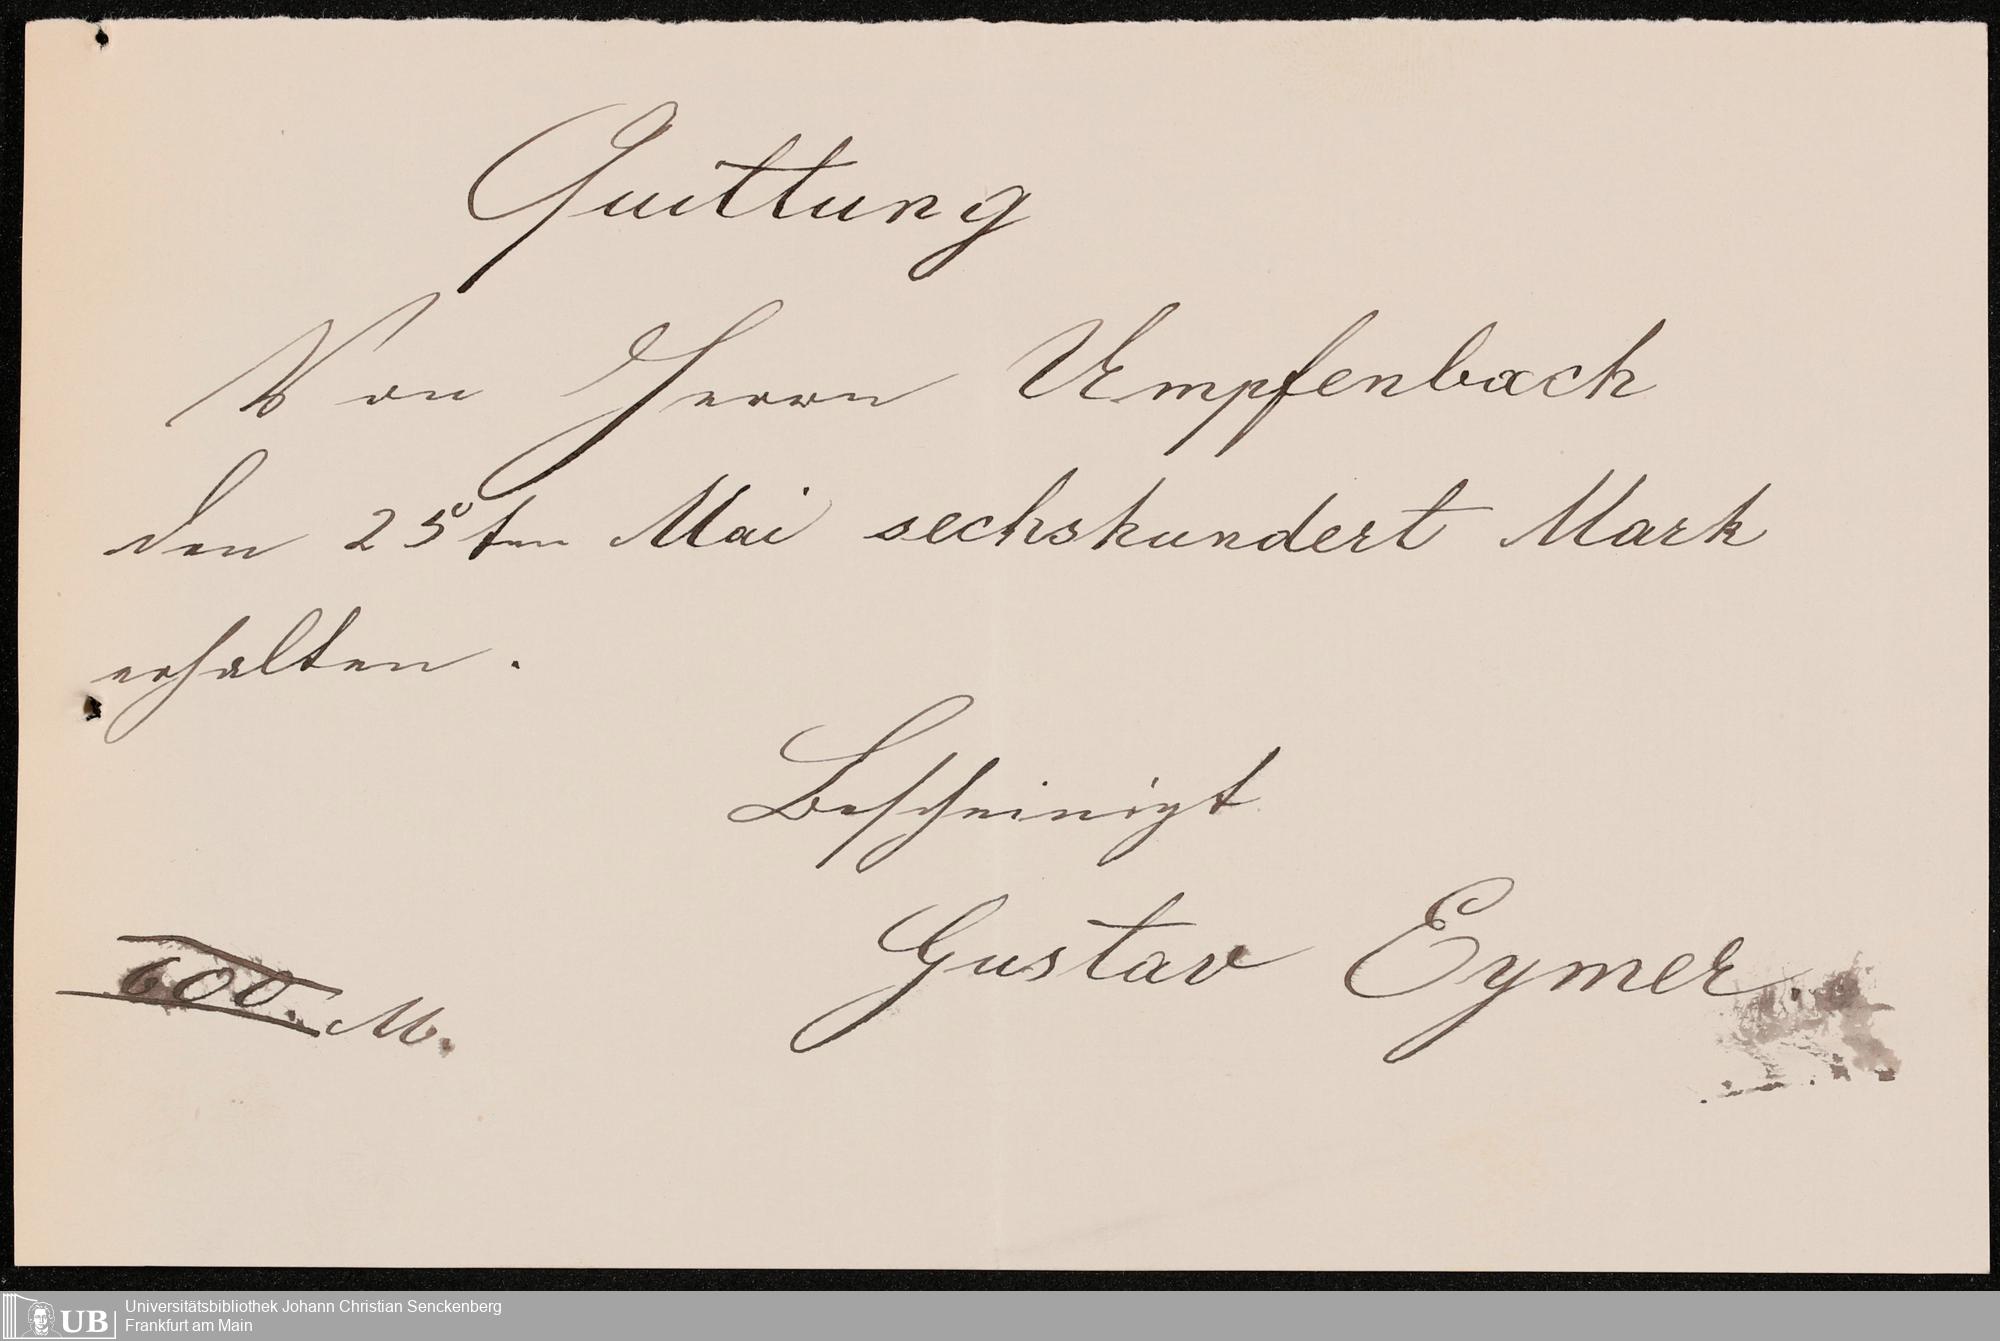 Quittung
Von Herrn Umpfenbach
den 25ten Mai sechshundert Mark
erhalten.
Bescheinigt
Gustav Eymer.
600. M.
UB
Universitätsbibliothek Johann Christian Senckenberg
Frankfurt am Main